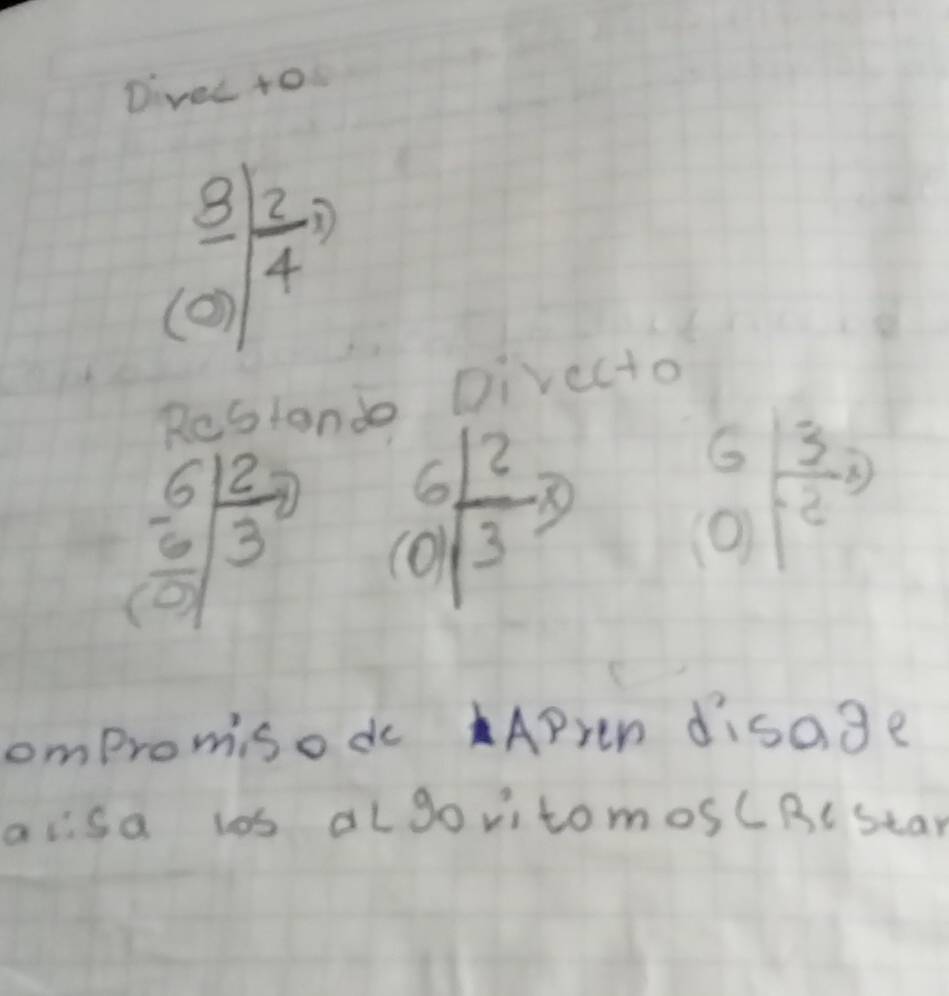 Directo
8 2
4
(0)
Restando Directo
6 2 6 2 6 3
-6 3 (0) 3 (0) 2
(0)
ompromiso de Apren disage
los aLgoritomos (Restar